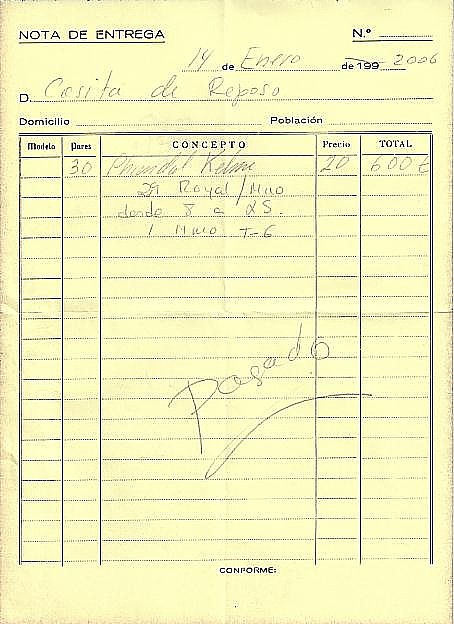 NOTA DE ENTREGA
N.º
14 de Enero de 199 2006
D. Casita de Reposo
Domicilio Población
Modelo Pares CONCEPTO Precio TOTAL
30 Kelme 20 600 €
29 Royal/
desde 8 a 25.
1 T-6
Pagado
CONFORME: